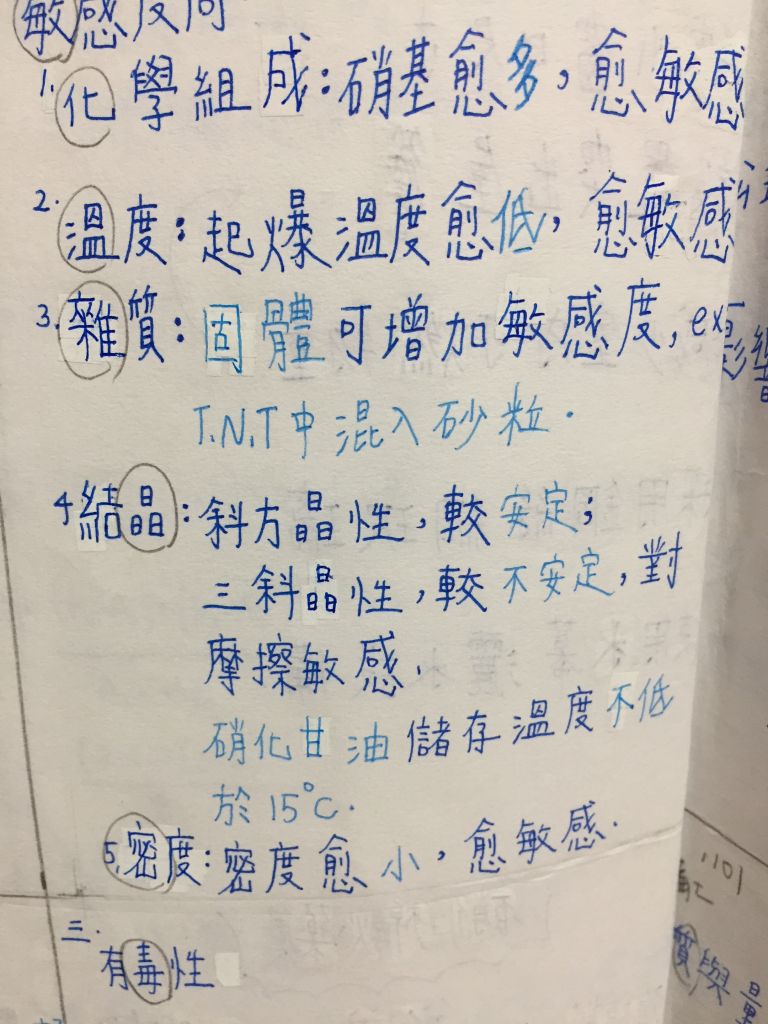 敏感度高
1. 化學組成：硝基愈多，愈敏感
2. 溫度：起爆溫度愈低，愈敏感
3. 雜質：固體可增加敏感度，ex
影響
T.N.T中混入砂粒．
4 結晶：斜方晶性，較安定；
三斜晶性，較不安定，對
摩擦敏感．
硝化甘油儲存溫度不低
於15°C．
5. 密度：密度愈小，愈敏感．
三．
有毒性
質與量